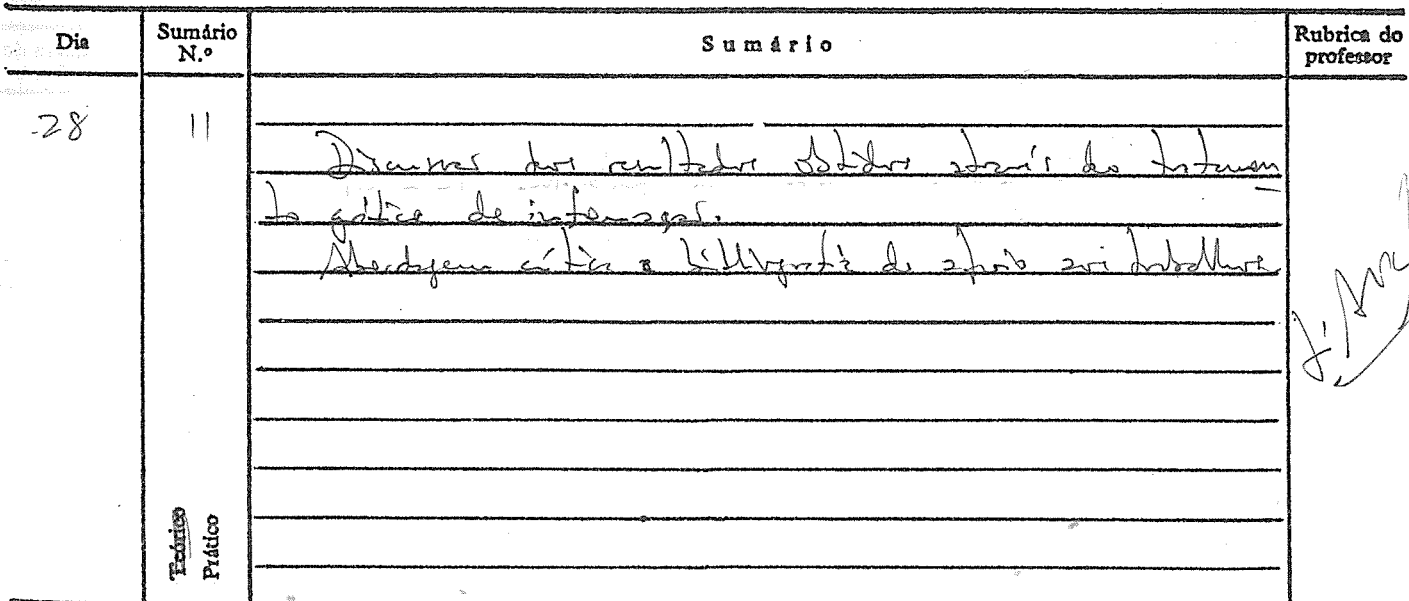 Dia
Sumário N.º
Sumário
Rubrica do professor
28
11
Discussão dos resultados obtidos através do tratamen
to gráfico de informação.
Abordagem crítica a bibliografia de apoio aos trabalhos
Teórico
Prático